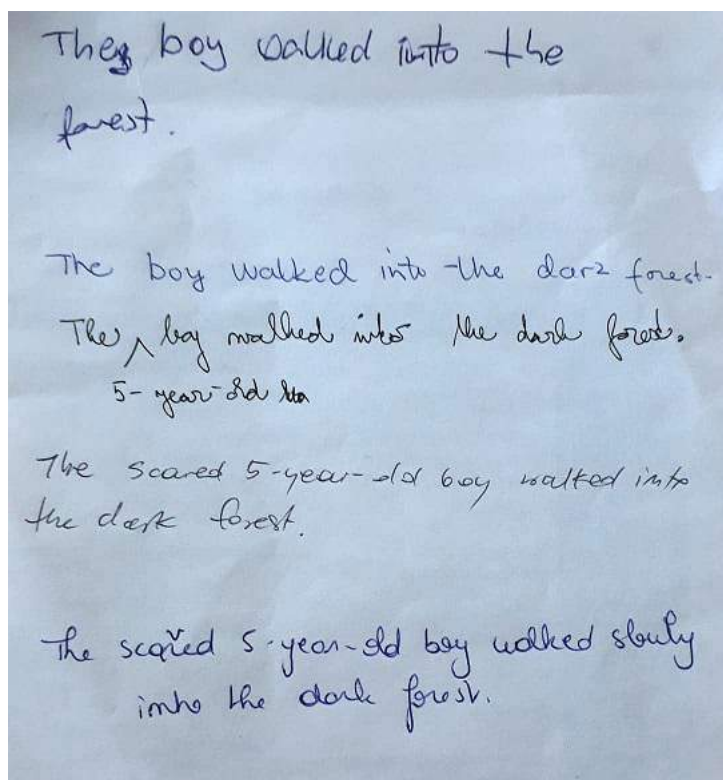 The boy walked into the
forest.
The boy walked into the dark forest.
The ^ boy walked into the dark forest.
5-year-old
The scared 5-year-old boy walked into
the dark forest.
The scared 5-year-old boy walked slowly
into the dark forest.